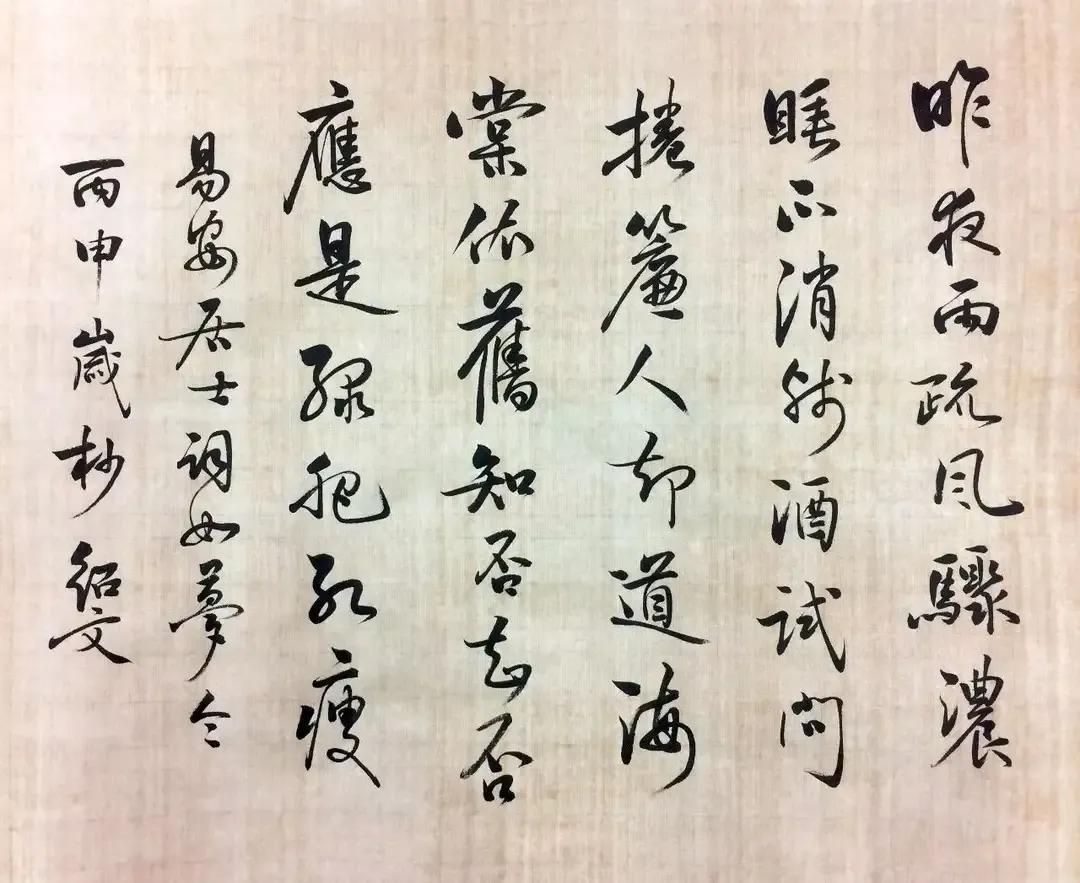 昨夜雨疏風驟濃
睡不消殘酒試問
捲簾人却道海
棠依舊知否知否
應是綠肥紅瘦
易安居士詞如夢令
丙申歲杪紹文